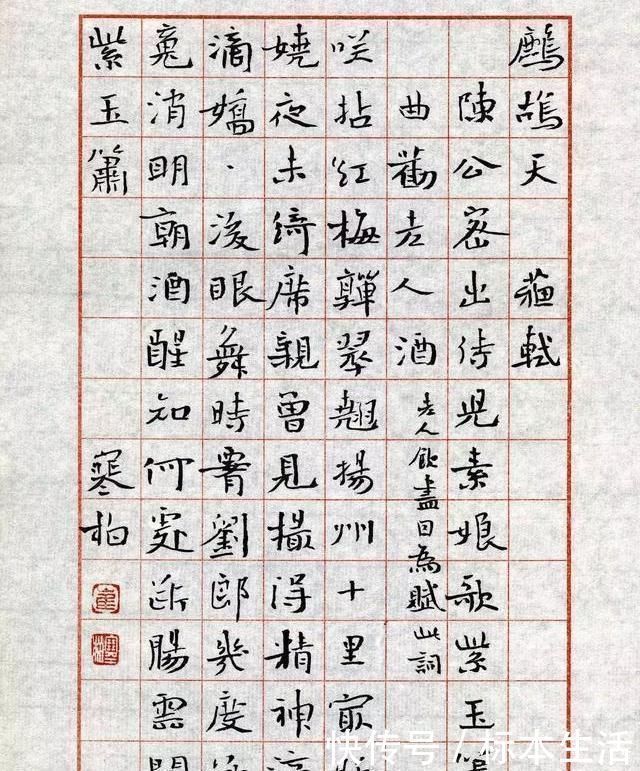 鷓鴣天 蘇軾
陳公密出侍兒素娘歌紫玉簫
曲勸老人酒 老人飲盡因為賦此詞
咲拈紅梅嚲翠翹揚州十里最
嬈夜来綺席親曾見撮得精神滴
滴嬌·後眼舞時腰劉郎幾度
魂消明朝酒醒知何處断腸雲間
紫玉簫 寒柏
快传号 / 标本生活